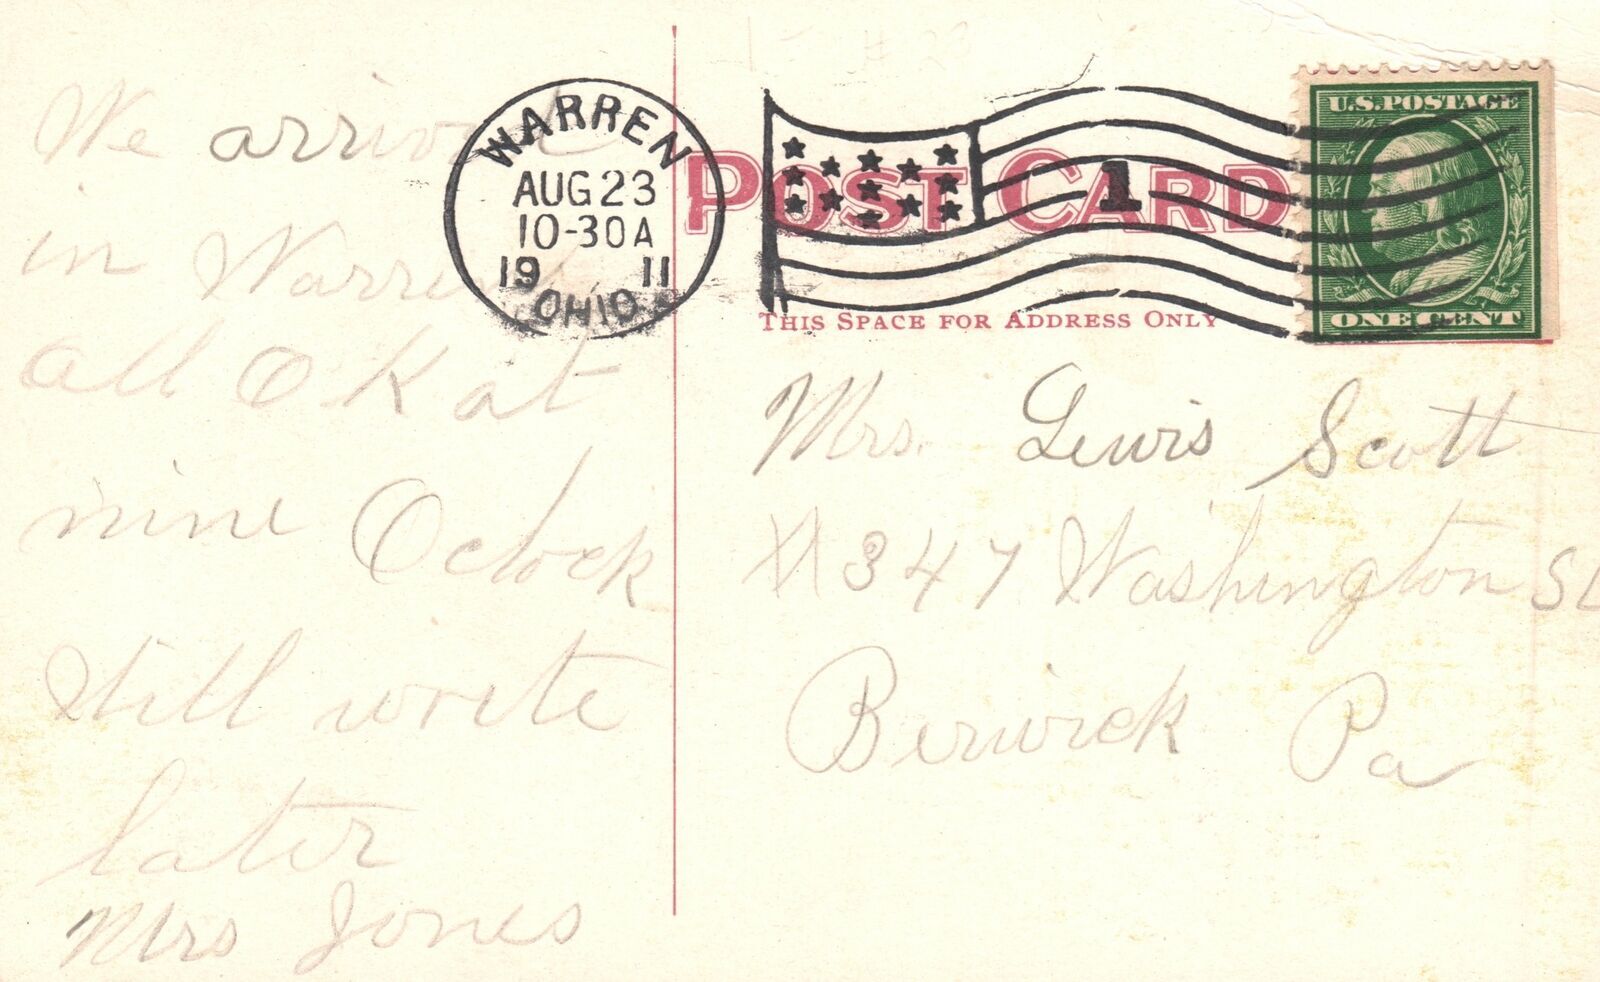 We arrived
in Warren
all O K at
nine Oclock
Still write
later
Mrs Jones
WARREN
AUG 23
10-30A
1911
OHIO
POST CARD
1
THIS SPACE FOR ADDRESS ONLY
U.S. POSTAGE
ONE CENT
Mrs. Lewis Scott
347 Washington St
Berwick Pa